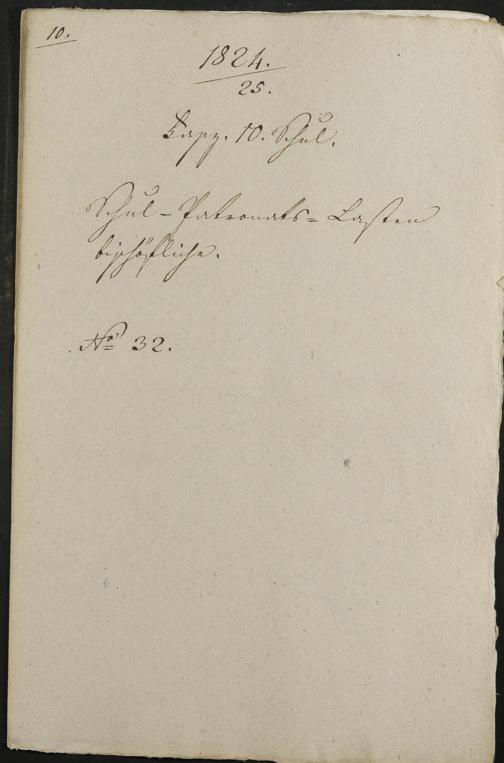 10.
1824.
25.
Lapp. 10. Schul.
Schul-Patronats-Lasten
bischöfliche.
No 32.